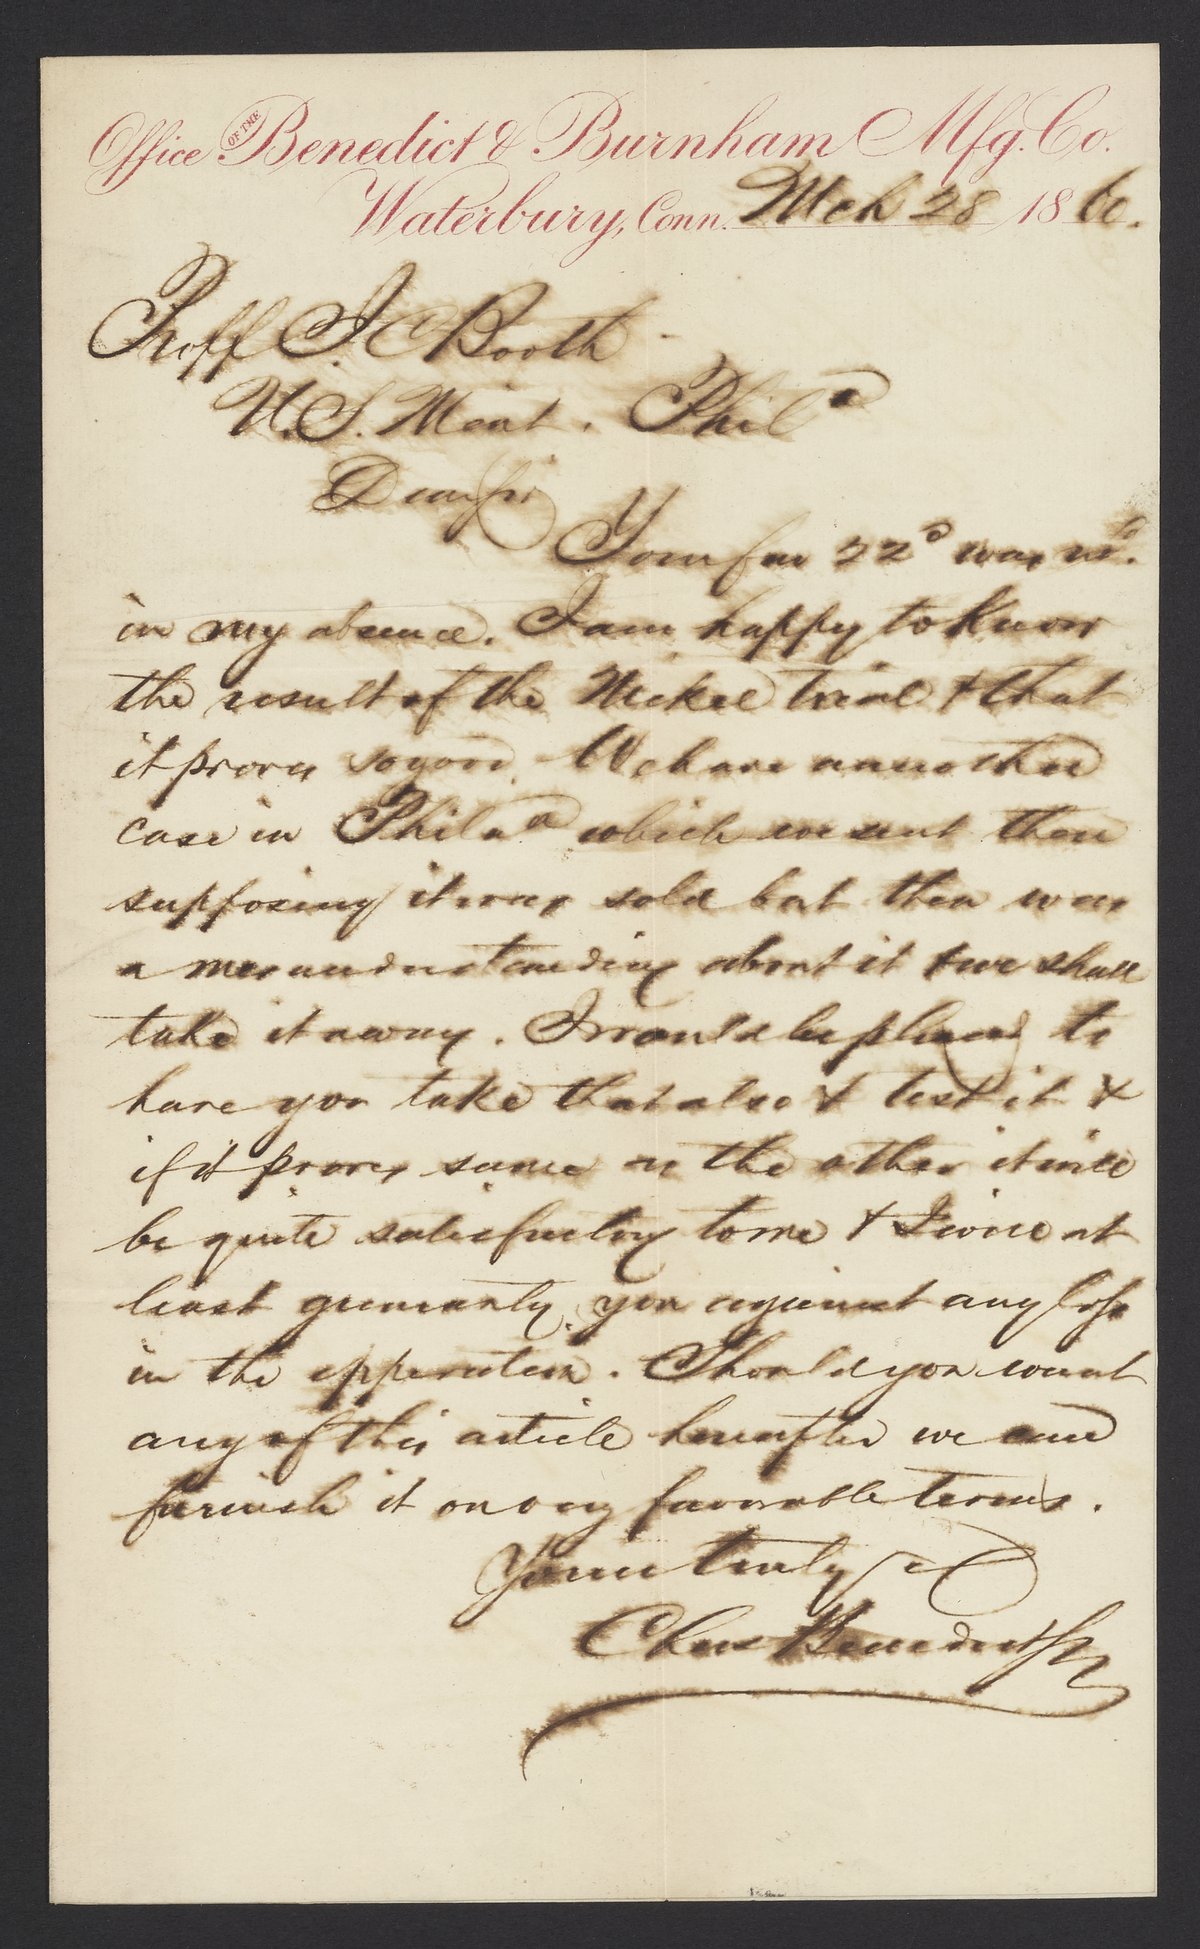 Office OF THE Benedict & Burnham Mfg. Co.
Waterbury, Conn. Mch 28 1860.
Proff J C Booth
U.S. Mint. Phila
Dear Sir
Your fav 22d was recd.
in my absence. I am happy to know
the result of the Nickel trial & that
it proves so good. We have another
case in Phila which we sent there
supposing it was sold but there was
a misunderstanding about it & we shall
take it away. I would be pleased to
have you take that also & test it &
if it proves same as the other it will
be quite satisfactory to me & I will at
least guaranty you against any loss
in the opperation. Should you want
any of this article hereafter we can
furnish it on favorable terms.
Yours truly &c
Chas Benedict